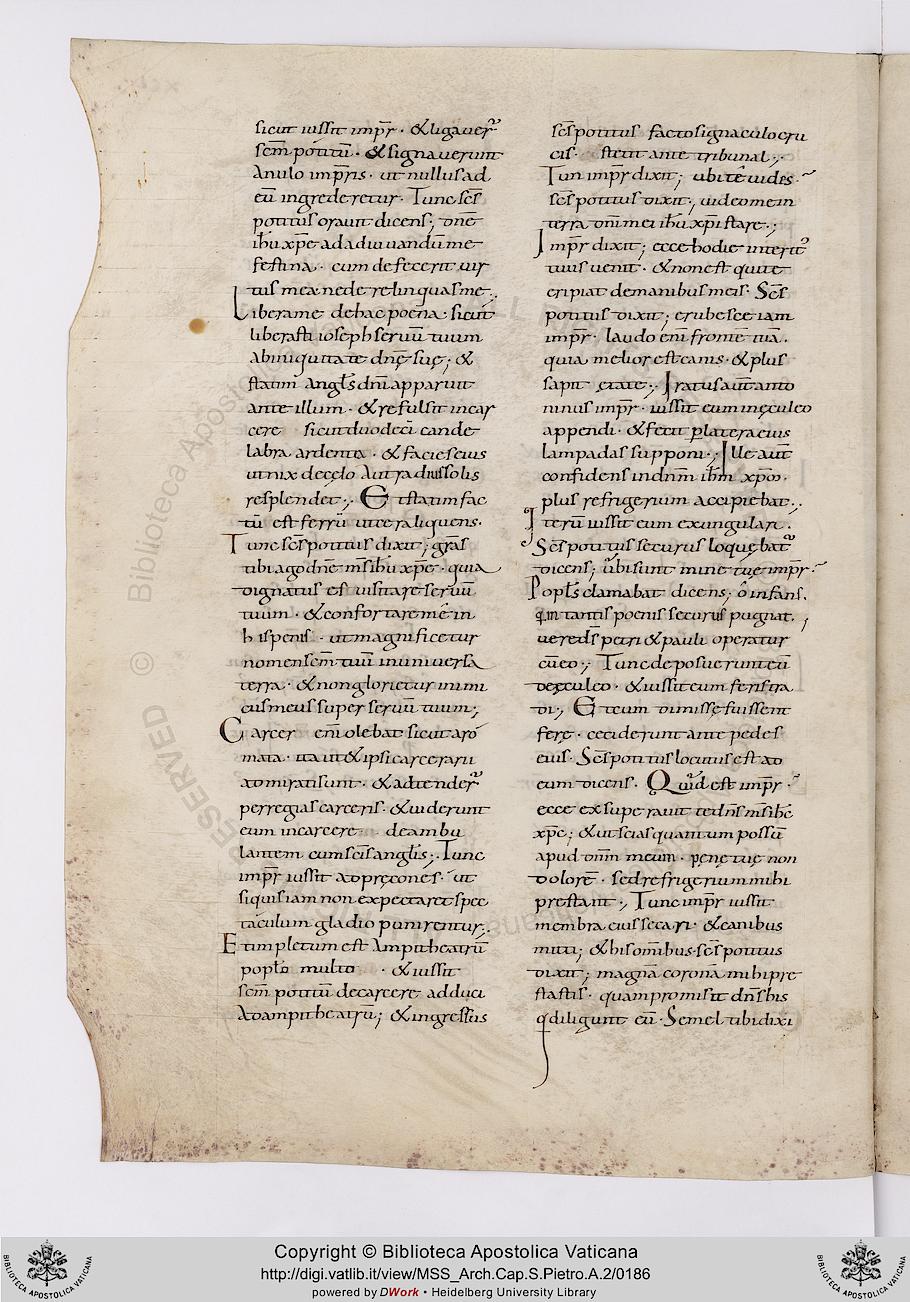 sicut iussit imp̄r · & ligauer̄
sc̄m potitū · & signauerunt
Anulo imp̄ris · ut nullus ad
eū ingrederetur · Tunc sc̄s
potitus orauit dicens ; dn̄e
ih̄u xp̄e ad adiuuandū me
festina · cum defecerit uir
tus mea ne derelinquas me ;
Libera me de hac poena · sicut
liberasti ioseph seruū tuum
ab iniquitate dn̄ę suę ; &
statim angl̄s dn̄i apparuit
ante illum · & refulsit in car
cere sicut duodeci cande
labra ardentia · & facies eius
ut nix de cęlo Aut radius solis
resplendet ; Et statim fac
tū est ferrū ut cera liquens ·
Tunc sc̄s potitus dixit ; gr̄as
tibi ago dn̄e ms ih̄u xp̄e · quia
dignatus es uisitare seruū
tuum · & confortare me in
his penis · ut magnificetur
nomen sc̄m tuū in uniuersa
terra · & non glorietur inimi
cus meus super seruū tuum ;
Carcer en̄i olebat sicut aro
mata · ita ut & ipsi carcerarii
admirati sunt · & adtender̄
per regias carceris · & uiderunt
eum in carcere deambu
lantem cum sc̄is angl̄is ; Tunc
imp̄r iussit ad pręcones · ut
siquis iam non expectaret spec
taculum gladio punirentur ;
Et impletum est Ampitheatrū
popl̄o multo · & iussit
sc̄m potitū de carcere adduci
Ad ampitheatrū ; & ingressus
sc̄s potitus facto signaculo cru
cis · stetit ante tribunal ;
Tun imp̄r dixit ; ubi tē uides ·
sc̄s potitus dixit ; uideo me in
terra dn̄i mei ih̄u xp̄i stare ;
Imp̄r dixit ; ecce hodie interit̄
tuus uenit · & non est qui te
eripiat de manibus meis · Sc̄s
potitus dixit ; erubesce iam
imp̄r · laudo en̄i frontē tuā ·
quia melior est canis · & plus
sapit ętate ; Iratus aūt anto
ninus imp̄r · iussit eum in ęculeo
appendi · & fecit p̱ latera eius
lampadas supponi ; Ille aūt
confidens in dn̄m ih̄m xp̄m ·
plus refrigerium accipiebat ;
Iterū iussit eum exungulari ·
Sc̄s potitus securus loquebat̄
dicens ; ubi sunt minę tuę imp̄r ·
Popl̄s clamabat dicens ; o infans ·
qm̄ in tantis poenis securus pugnat ;
uere ds̄ petri & pauli operatur
cū eo ; Tunc deposuerunt eū
de ęculeo · & iussit eum feris tra
di ; Et cum dimissę fuissent
ferę · ceciderunt ante pedes
eius · Sc̄s potitus locutus est ad
eum dicens · Quid est imp̄r ·
ecce exsuperauit te dn̄s ms ih̄c
xp̄c ; & ut scias quantum possū
apud dn̄m meum · pęnę tuę non
dolorē · sed refrigerium mihi
prestant ; Tunc imp̄r iussit
membra eius secari · & canibus
mitti ; & his omībus · sc̄s potitus
dixit ; magnā coronā mihi pre
stastis · quam promisit dn̄s his
q diligunt eū · Semel tibi dixi
Copyright © Biblioteca Apostolica Vaticana
http://digi.vatlib.it/view/MSS_Arch.Cap.S.Pietro.A.2/0186
powered by DWork • Heidelberg University Library